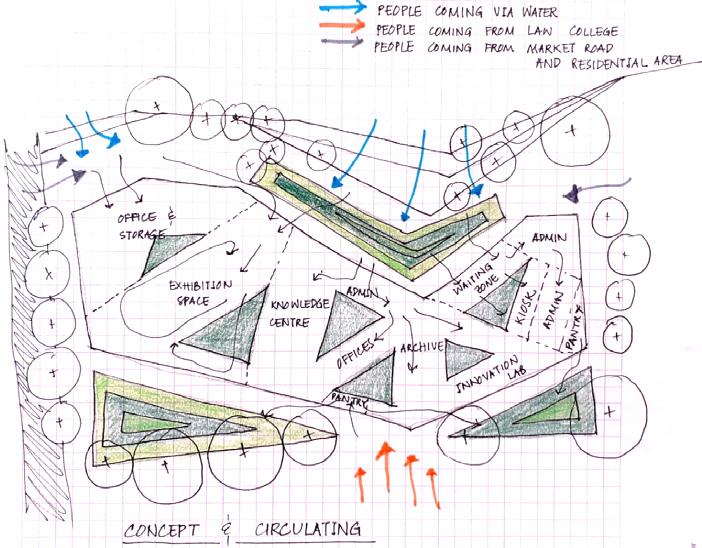 PEOPLE COMING VIA WATER
PEOPLE COMING FROM LAW COLLEGE
PEOPLE COMING FROM MARKET ROAD
AND RESIDENTIAL AREA
OFFICE &
STORAGE
ADMIN
WAITING
ZONE
EXHIBITION
SPACE
KNOWLEDGE
CENTRE
ADMIN
KIOSK
ADMIN
PANTRY
OFFICES
ARCHIVE
INNOVATION
LAB
PANTRY
CONCEPT & CIRCULATING